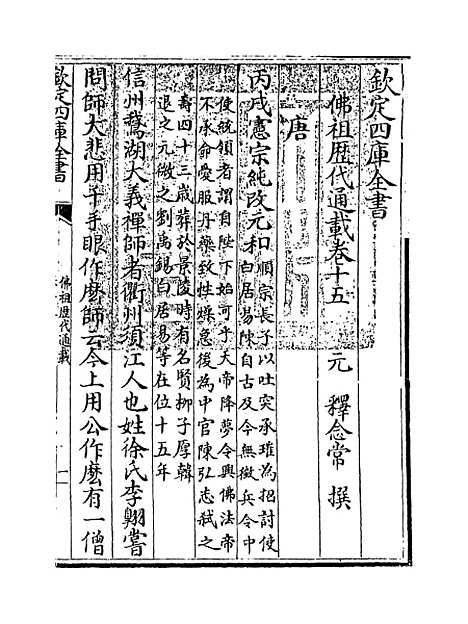 欽定四庫全書
佛祖歴代通載卷十五
元 釋念常 撰
唐
丙戌憲宗純改元和
順宗長子以吐突承璀為招討使
白居易陳自古及今無徴兵令中
使統領者謂自陛下始河乎天帝降夢令興佛法帝
不承命愛服丹藥致性燥急後為中官陳弘志弑之
壽四十三歲葬於景陵時有名賢柳子厚韓
退之元微之劉禹錫白居易等在位十五年
信州鵝湖大義禪師者衢州須江人也姓徐氏李翺嘗
問師大悲用千手眼作麽師云今上用公作麽有一僧
欽定四庫全書
佛祖歴代通載
一